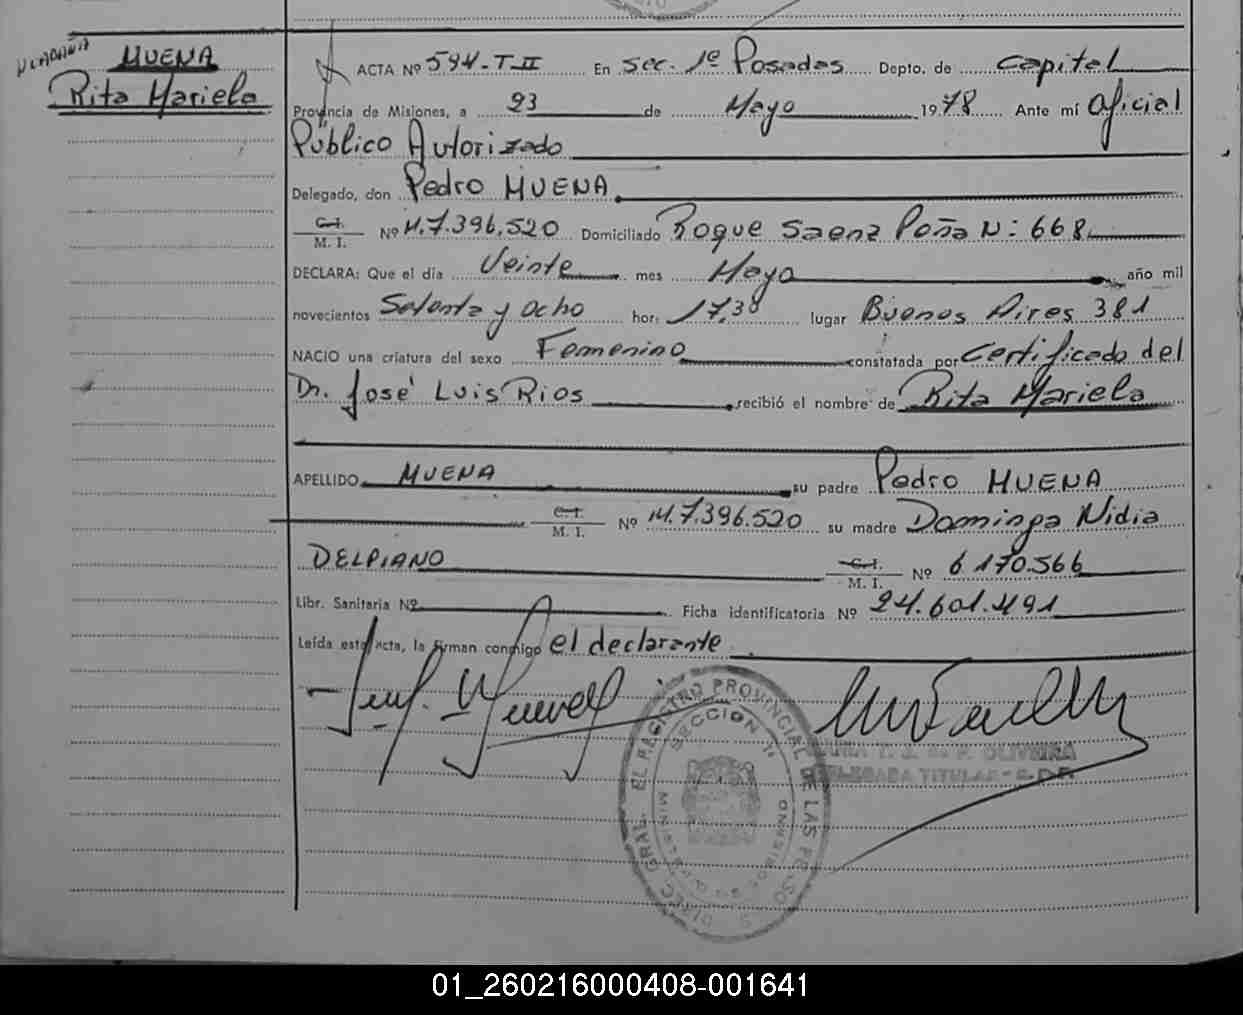 MUENA
Rita Mariela
ACTA Nº 594-T-II En sec. 1º Posadas Depto. de Capital
Provincia de Misiones, a 23 de Mayo 1978 Ante mí Oficial
Público Autorizado
Delegado, don Pedro MUENA
C.I.
M. I. Nº M.7.396.520 Domiciliado Roque Saenz Peña N: 668
DECLARA: Que el día Veinte mes Mayo año mil
novecientos Setenta y ocho hor: 17,30 lugar Buenos Aires 381
NACIO una criatura del sexo Femenino constatada por Certificado del
Dr. José Luis Rios recibió el nombre de Rita Mariela
APELLIDO MUENA su padre Pedro MUENA
C.I.
M. I. Nº M.7.396.520 su madre Dominga Nidia
DELPIANO C.I.
M. I. Nº 6 170.566
Libr. Sanitaria Nº Ficha identificatoria Nº 24.601.491
Leída esta acta, la firman conmigo el declarante
DIREC. GRAL. EL REGISTRO PROVINCIAL DE LAS PERSO
SECCION 1ª
T. J. de P. OLIVEIRA
DELEGADA TITULAR
01_260216000408-001641